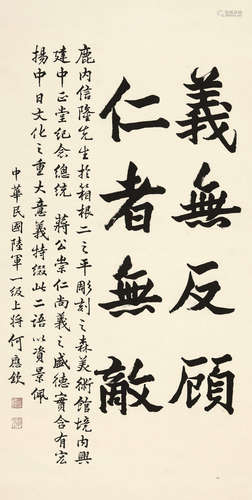 義無反顧
仁者無敵
鹿内信隆先生於箱根二之平彫刻之森美術館境内興
建中正堂紀念總統 蔣公崇仁尚義之盛德實含有宏
揚中日文化之重大意義特綴此二語以資景佩
中華民國陸軍一級上將何應欽